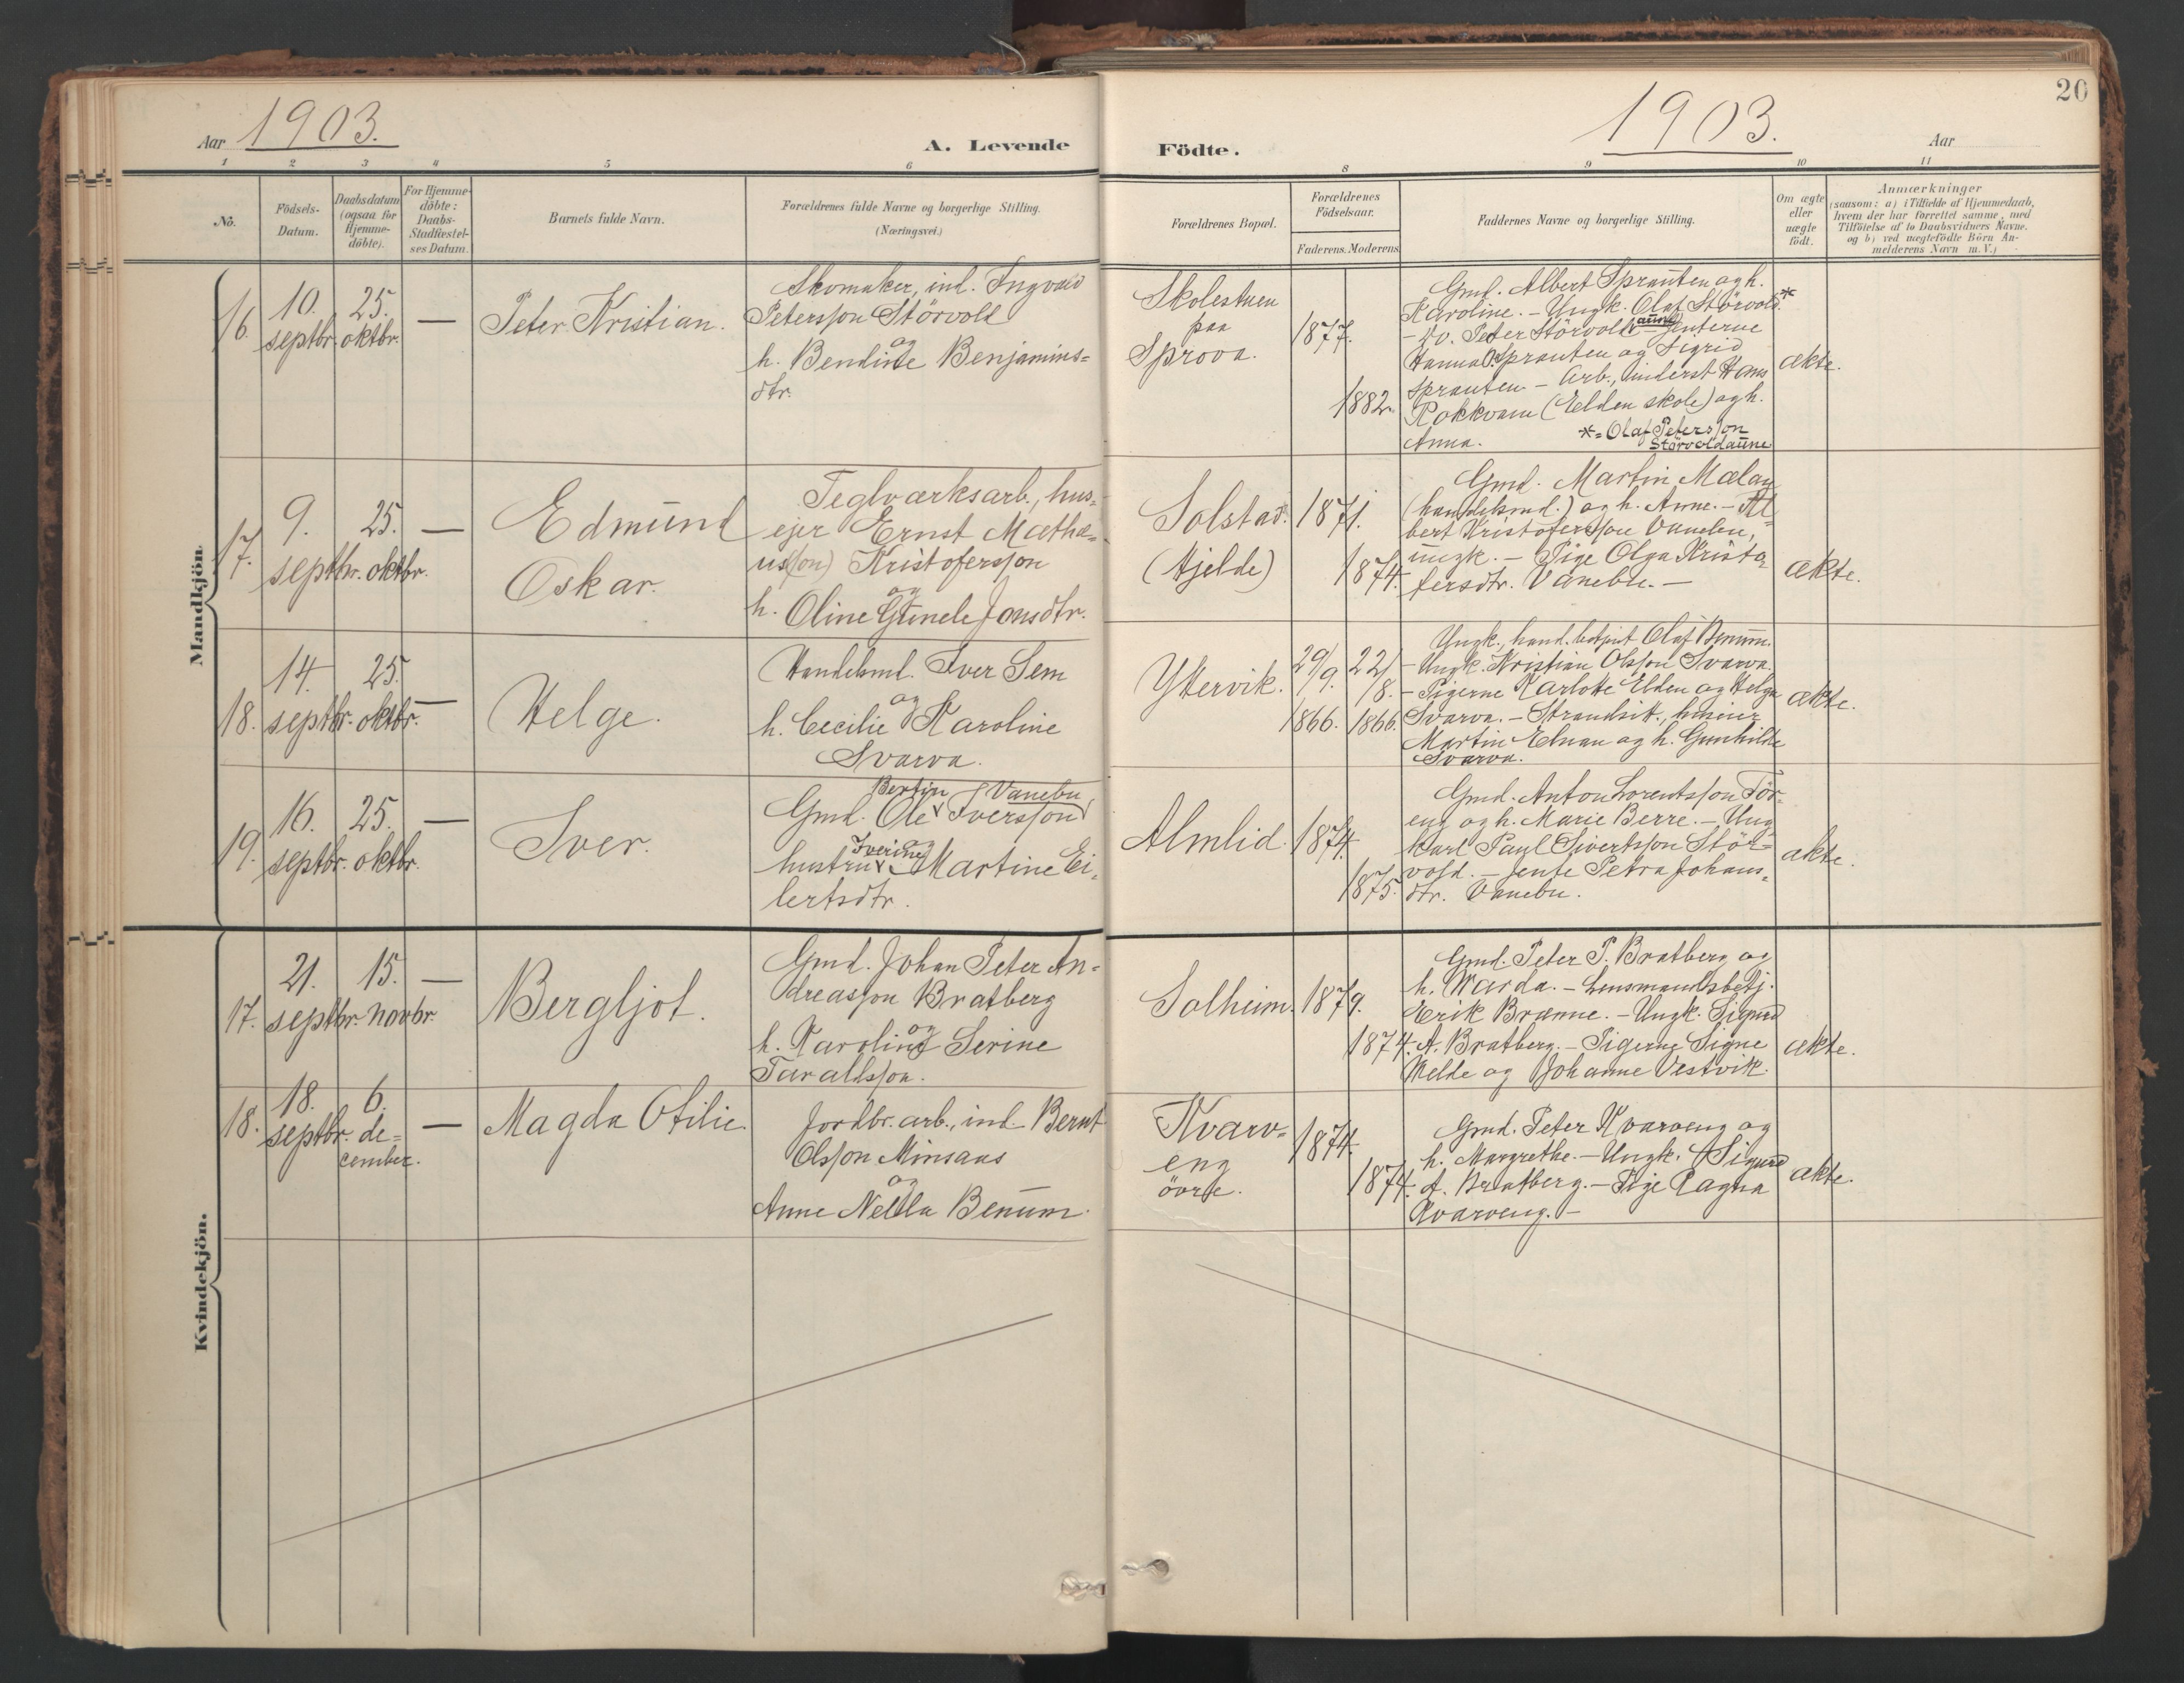 20
Aar 1903.
A. Levende
Födte.
1903.
Aar
1 2 3 4 5 6
8 9 10 11
No.
Födsels-
Datum.
Daabsdatum
(ogsaa for
Hjemme-
döbte).
For Hjemme-
döbte:
Daabs-
Stadfæstel-
ses Datum.
Barnets fulde Navn.
Forældrenes fulde Navne og borgerlige Stilling.
(Næringsvei.)
Forældrenes Bopæl.
Forældrenes
Födselsaar.
Faderens. Moderens.
Faddernes Navne og borgerlige Stilling.
Om ægte
eller
uægte
födt.
Anmærkninger
(saasom: a) i Tilfælde af Hjemmedaab,
hvem der har forrettet samme, med
Tilföielse af to Daabsvidners Navne.
og b) ved uægtefödte Börn An-
melderens Navn m. V.)
Mandkjön.
16.
10.
septbr.
25.
oktbr.
—
Peter Kristian.
Skomaker, ind. Ingvald
Petersson Störvold
og
h. Bendine Benjamins=
dtr.
Skolestuen
paa
Sprova.
1877.
1882.
Gmd. Albert Sprauten og h.
Karoline. - Ungk. Olaf Störvold.*
- Do. Peter Störvoldaune - Jenterne
Hanna O. Sprauten og Sigrid
Sprauten - Arb., inderst Hans
Rokkvam (Elden skole) og h.
Anna.
*= Olaf Petersson
Störvoldaune
ækte.
17.
9.
septbr.
25.
oktbr.
—
Edmund
Oskar.
Teglværksarb., hus=
ejer Ernst Mathæ=
us(son) Kristofersson
og
h. Oline Gunele Jonsdtr.
Solstad.
(Hjelde)
1871.
1874.
Gmd. Martin Mælan
(handelsmd.) og h. Anne. - Al=
bert Kristofersson Vanebu,
ungk. - Pige Olga Kristo=
fersdtr. Vanebu. -
ækte.
18.
14.
septbr.
25.
oktbr.
—
Helge.
Handelsmd. Iver Sem
og
h. Cecilie Karoline
Svarva.
Ytervik.
29/9. 1866.
22/8. 1866.
Ungk., hand. betjent Olaf Benum.
- Ungk. Kristian Olsson Svarva.
- Pigerne Karlotte Elden og Helga
Svarva. - Strandsit., huseier
Martin Elnan og h. Gunhilde
Svarva.
ækte.
19.
16.
septbr.
25.
oktbr.
—
Iver.
Bertin Vanebu
Gmd. Ole Iversson
og
Iverine
hustru Martine Ei=
lertsdtr.
Almlid.
1874.
1875.
Gmd. Anton Lorentsson Tör=
eng og h. Marie Berre. - Ung
karl Paul Sivertsson Stör=
vold. - Jente Petra Johans=
dtr. Vanebu.
ækte.
Kvindekjön.
17.
21.
septbr.
15.
novbr.
—
Bergljot.
Gmd. Johan Peter An=
dreasson Bratberg
og
h. Karoline Serine
Faraldsson.
Solheim.
1879.
1874.
Gmd. Peter P. Bratberg og
h. Warda. - Lensmandsbetj.
Erik Brænne. - Ungk. Sigurd
A. Bratberg. - Pigerne Signe
Melde og Johanne Vestvik.
ækte.
18.
18.
septbr.
6.
de=
cember.
—
Magda Otilie
Jordbr. arb., ind. Bernt
Olsson Minsaas
og
Anne Nella Benum.
Kvarv=
eng
övre.
1874.
1874.
Gmd. Peter Kvarveng og
h. Margrethe. - Ungk. Sigurd
A. Bratberg. - Pige Ragna
Kvarveng. -
ækte.